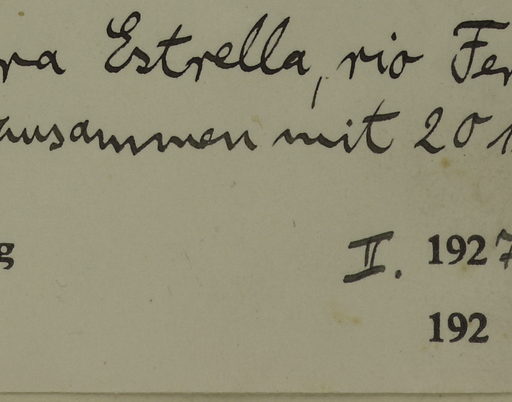 ra Estrella, rio Fer
zusammen mit 20 1
g II. 1927
192